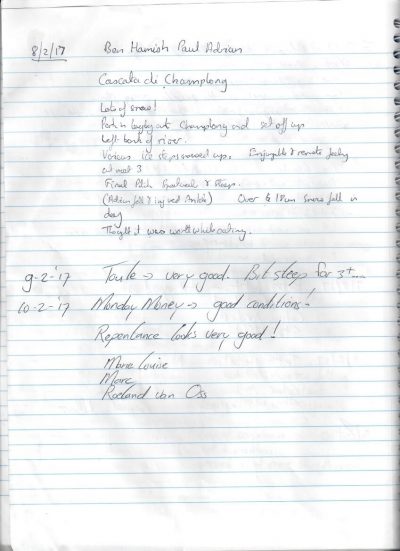 8/2/17 Ben Hamish Paul Adrian
Cascata di Champlong
Lots of snow!
Park in layby at Champlong and set off up
left bank of river.
Various ice steps up. Enjoyable & remote feeling
at most 3
Final Pitch & steep.
(Adrian fell & injured Ankle) Over 10cm Snow fall in
day
Thought it was worthwhile outing.
9-2-'17 Toule -> very good. Bit steep for 3+...
10-2-'17 Monday Money -> good conditions!
Repentance looks very good!
Marie Louise
Marc
Roeland van Oss